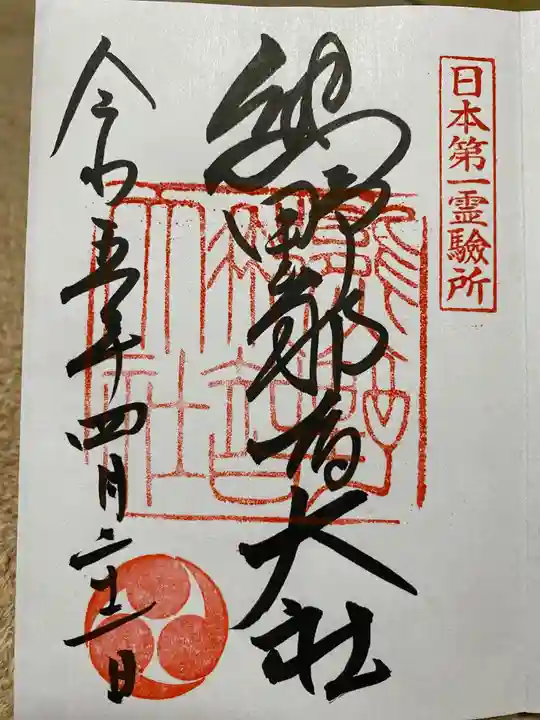 日本第一霊驗所
熊野那智大社
令和五年四月二十一日